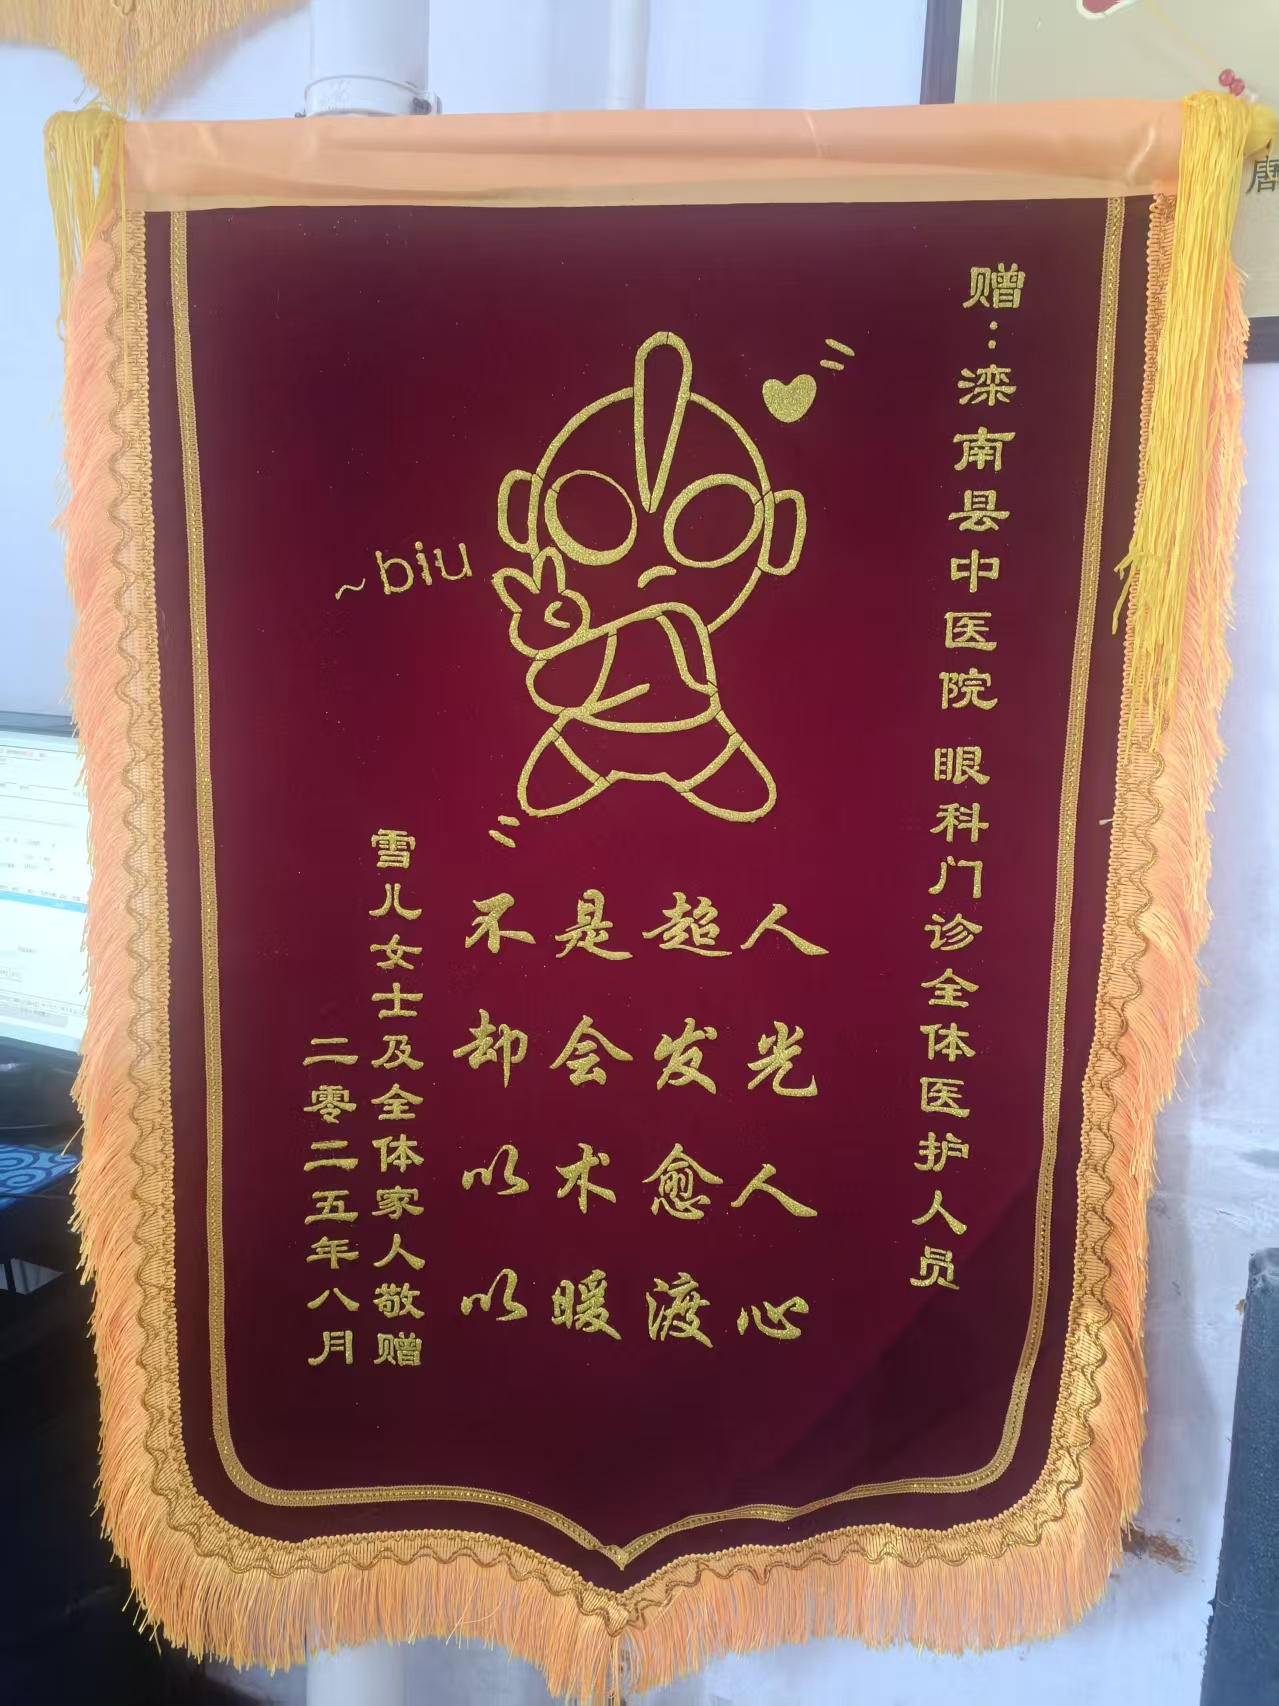 赠：滦南县中医院 眼科门诊全体医护人员
~biu
不是超人
却会发光
以术愈人
以暖渡心
雪儿女士及全体家人敬赠
二零二五年八月
唐